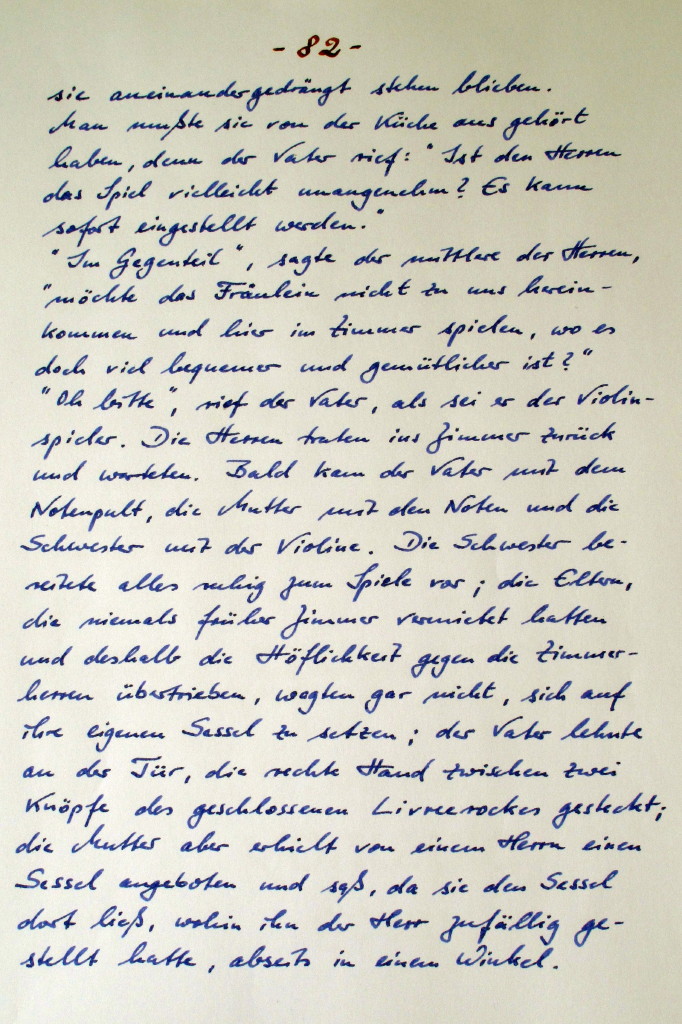 - 82 -
sie aneinandergedrängt stehen blieben.
Man mußte sie von der Küche aus gehört
haben, denn der Vater rief: "Ist den Herren
das Spiel vielleicht unangenehm? Es kann
sofort eingestellt werden."
"Im Gegenteil", sagte der mittlere der Herren,
"möchte das Fräulein nicht zu uns herein-
kommen und hier im Zimmer spielen, wo es
doch viel bequemer und gemütlicher ist?"
"Oh bitte", rief der Vater, als sei er der Violin-
spieler. Die Herren traten ins Zimmer zurück
und warteten. Bald kam der Vater mit dem
Notenpult, die Mutter mit den Noten und die
Schwester mit der Violine. Die Schwester be-
reitete alles ruhig zum Spiele vor; die Eltern,
die niemals früher Zimmer vermietet hatten
und deshalb die Höflichkeit gegen die Zimmer-
herren übertrieben, wagten gar nicht, sich auf
ihre eigenen Sessel zu setzen; der Vater lehnte
an der Tür, die rechte Hand zwischen zwei
Knöpfe des geschlossenen Livreerockes gesteckt;
die Mutter aber erhielt von einem Herrn einen
Sessel angeboten und saß, da sie den Sessel
dort ließ, wohin ihn der Herr zufällig ge-
stellt hatte, abseits in einem Winkel.